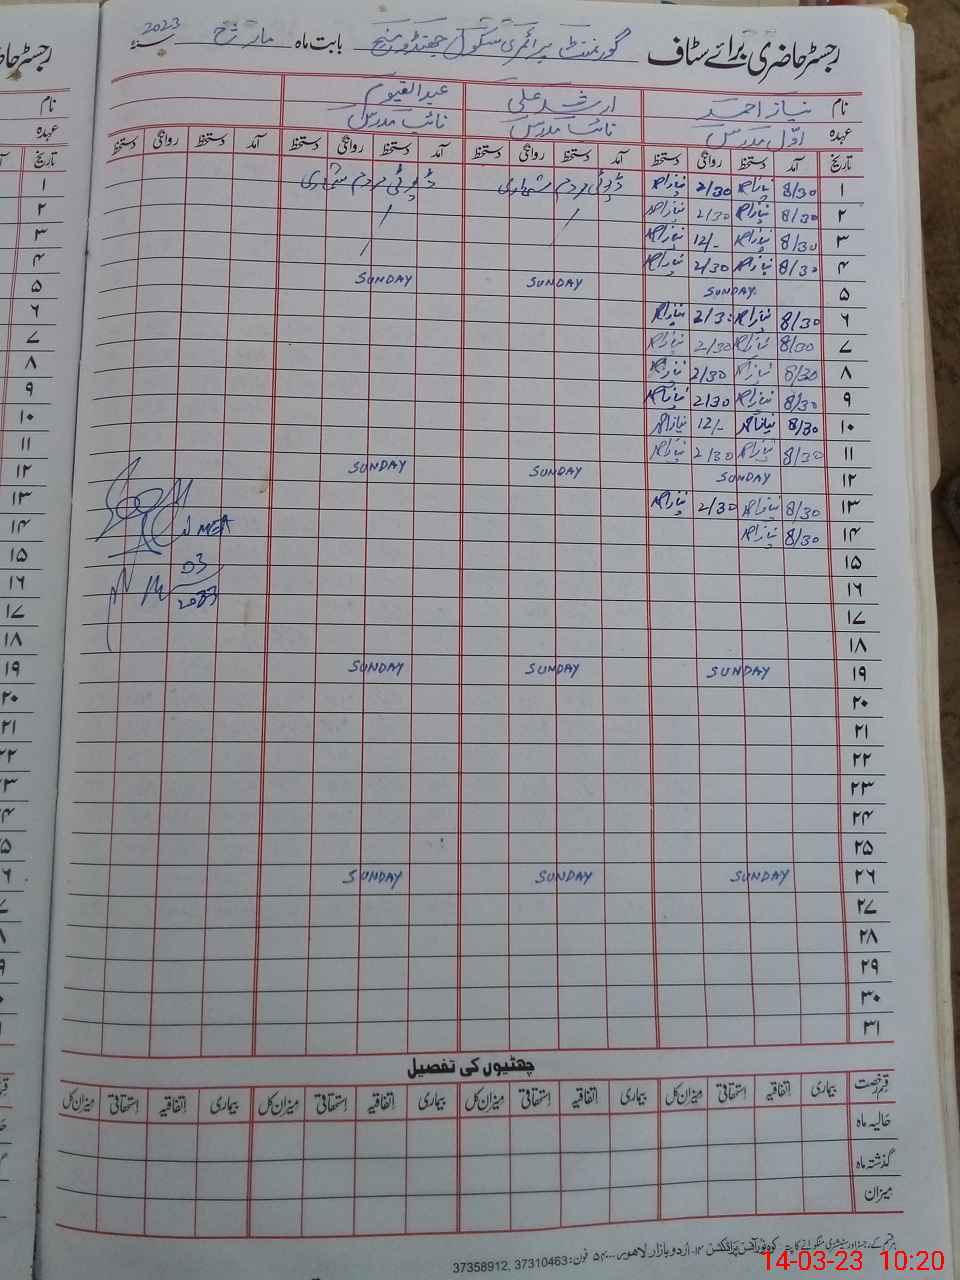 رجسٹر حاضری برائے سٹاف گورنمنٹ پرائمری سکول بابت ماہ مارچ 2023
نام نیاز احمد ارشد علی عبدالقیوم
عہدہ اول مدرس نائب مدرس نائب مدرس
تاریخ آمد دستخط روانگی دستخط آمد دستخط روانگی دستخط آمد دستخط روانگی دستخط آمد دستخط روانگی دستخط
۱ 8/30 نیاز احمد 2/30 نیاز احمد ڈیوٹی مردم شماری ڈیوٹی مردم شماری
۲ 8/30 نیاز احمد 2/30 نیاز احمد / /
۳ 8/30 نیاز احمد 12/- نیاز احمد /
۴ 8/30 نیاز احمد 2/30 نیاز احمد
۵ SUNDAY. SUNDAY SUNDAY
۶ 8/30 نیاز احمد 2/3: نیاز احمد
۷ 8/30 نیاز احمد 2/30 نیاز احمد
۸ 8/30 نیاز احمد 2/30 نیاز احمد
۹ 8/30 نیاز احمد 2/30 نیاز احمد
۱۰ 8/30 نیاز احمد 12/- نیاز احمد
۱۱ 8/30 نیاز احمد 2/30 نیاز احمد
۱۲ SUNDAY SUNDAY SUNDAY
۱۳ 8/30 نیاز احمد 2/30 نیاز احمد
۱۴ 8/30 نیاز احمد
MEA
۱۵
03
۱۶
2023
۱۷
۱۸
۱۹ SUNDAY SUNDAY SUNDAY
۲۰
۲۱
۲۲
۲۳
۲۴
۲۵
۲۶ SUNDAY SUNDAY SUNDAY
۲۷
۲۸
۲۹
۳۰
۳۱
چھٹیوں کی تفصیل
قسم رخصت بیماری اتفاقیہ استحقاقی میزان کل بیماری اتفاقیہ استحقاقی میزان کل بیماری اتفاقیہ استحقاقی میزان کل بیماری اتفاقیہ استحقاقی میزان کل
حالیہ ماہ
گذشتہ ماہ
میزان
اُردو بازار لاہور فون: 37310463, 37358912
14-03-23 10:20